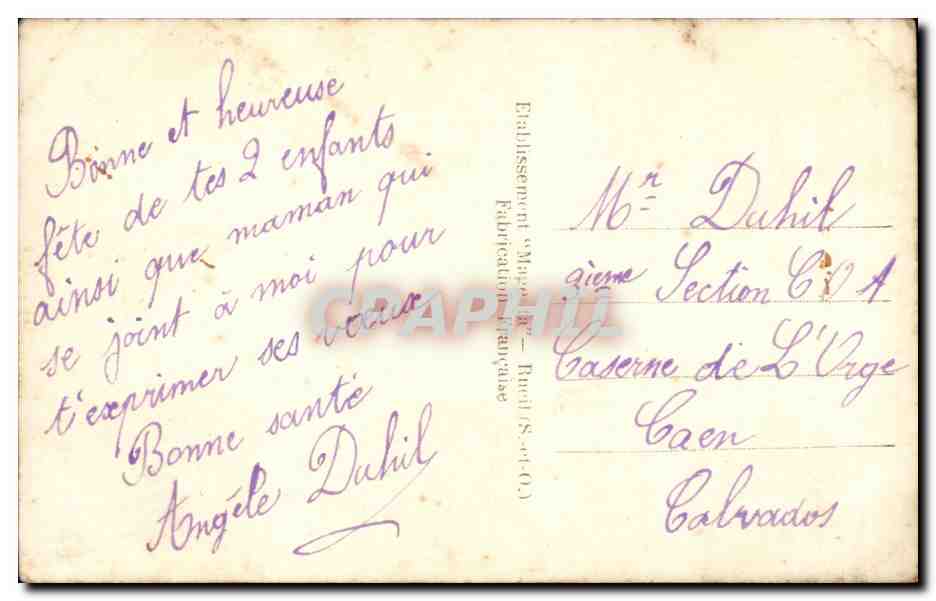 Bonne et heureuse
fête de tes 2 enfants
ainsi que maman qui
se joint à moi pour
t'exprimer ses vœux
Bonne santé
Angéle Duhil
Etablissement "Mage da" — Rueil (S.-et-O.)
Fabrication Française
CPAPHIL
Mr Duhil
9ieme Section C O A
Caserne de L'Orge
Caen
Calvados